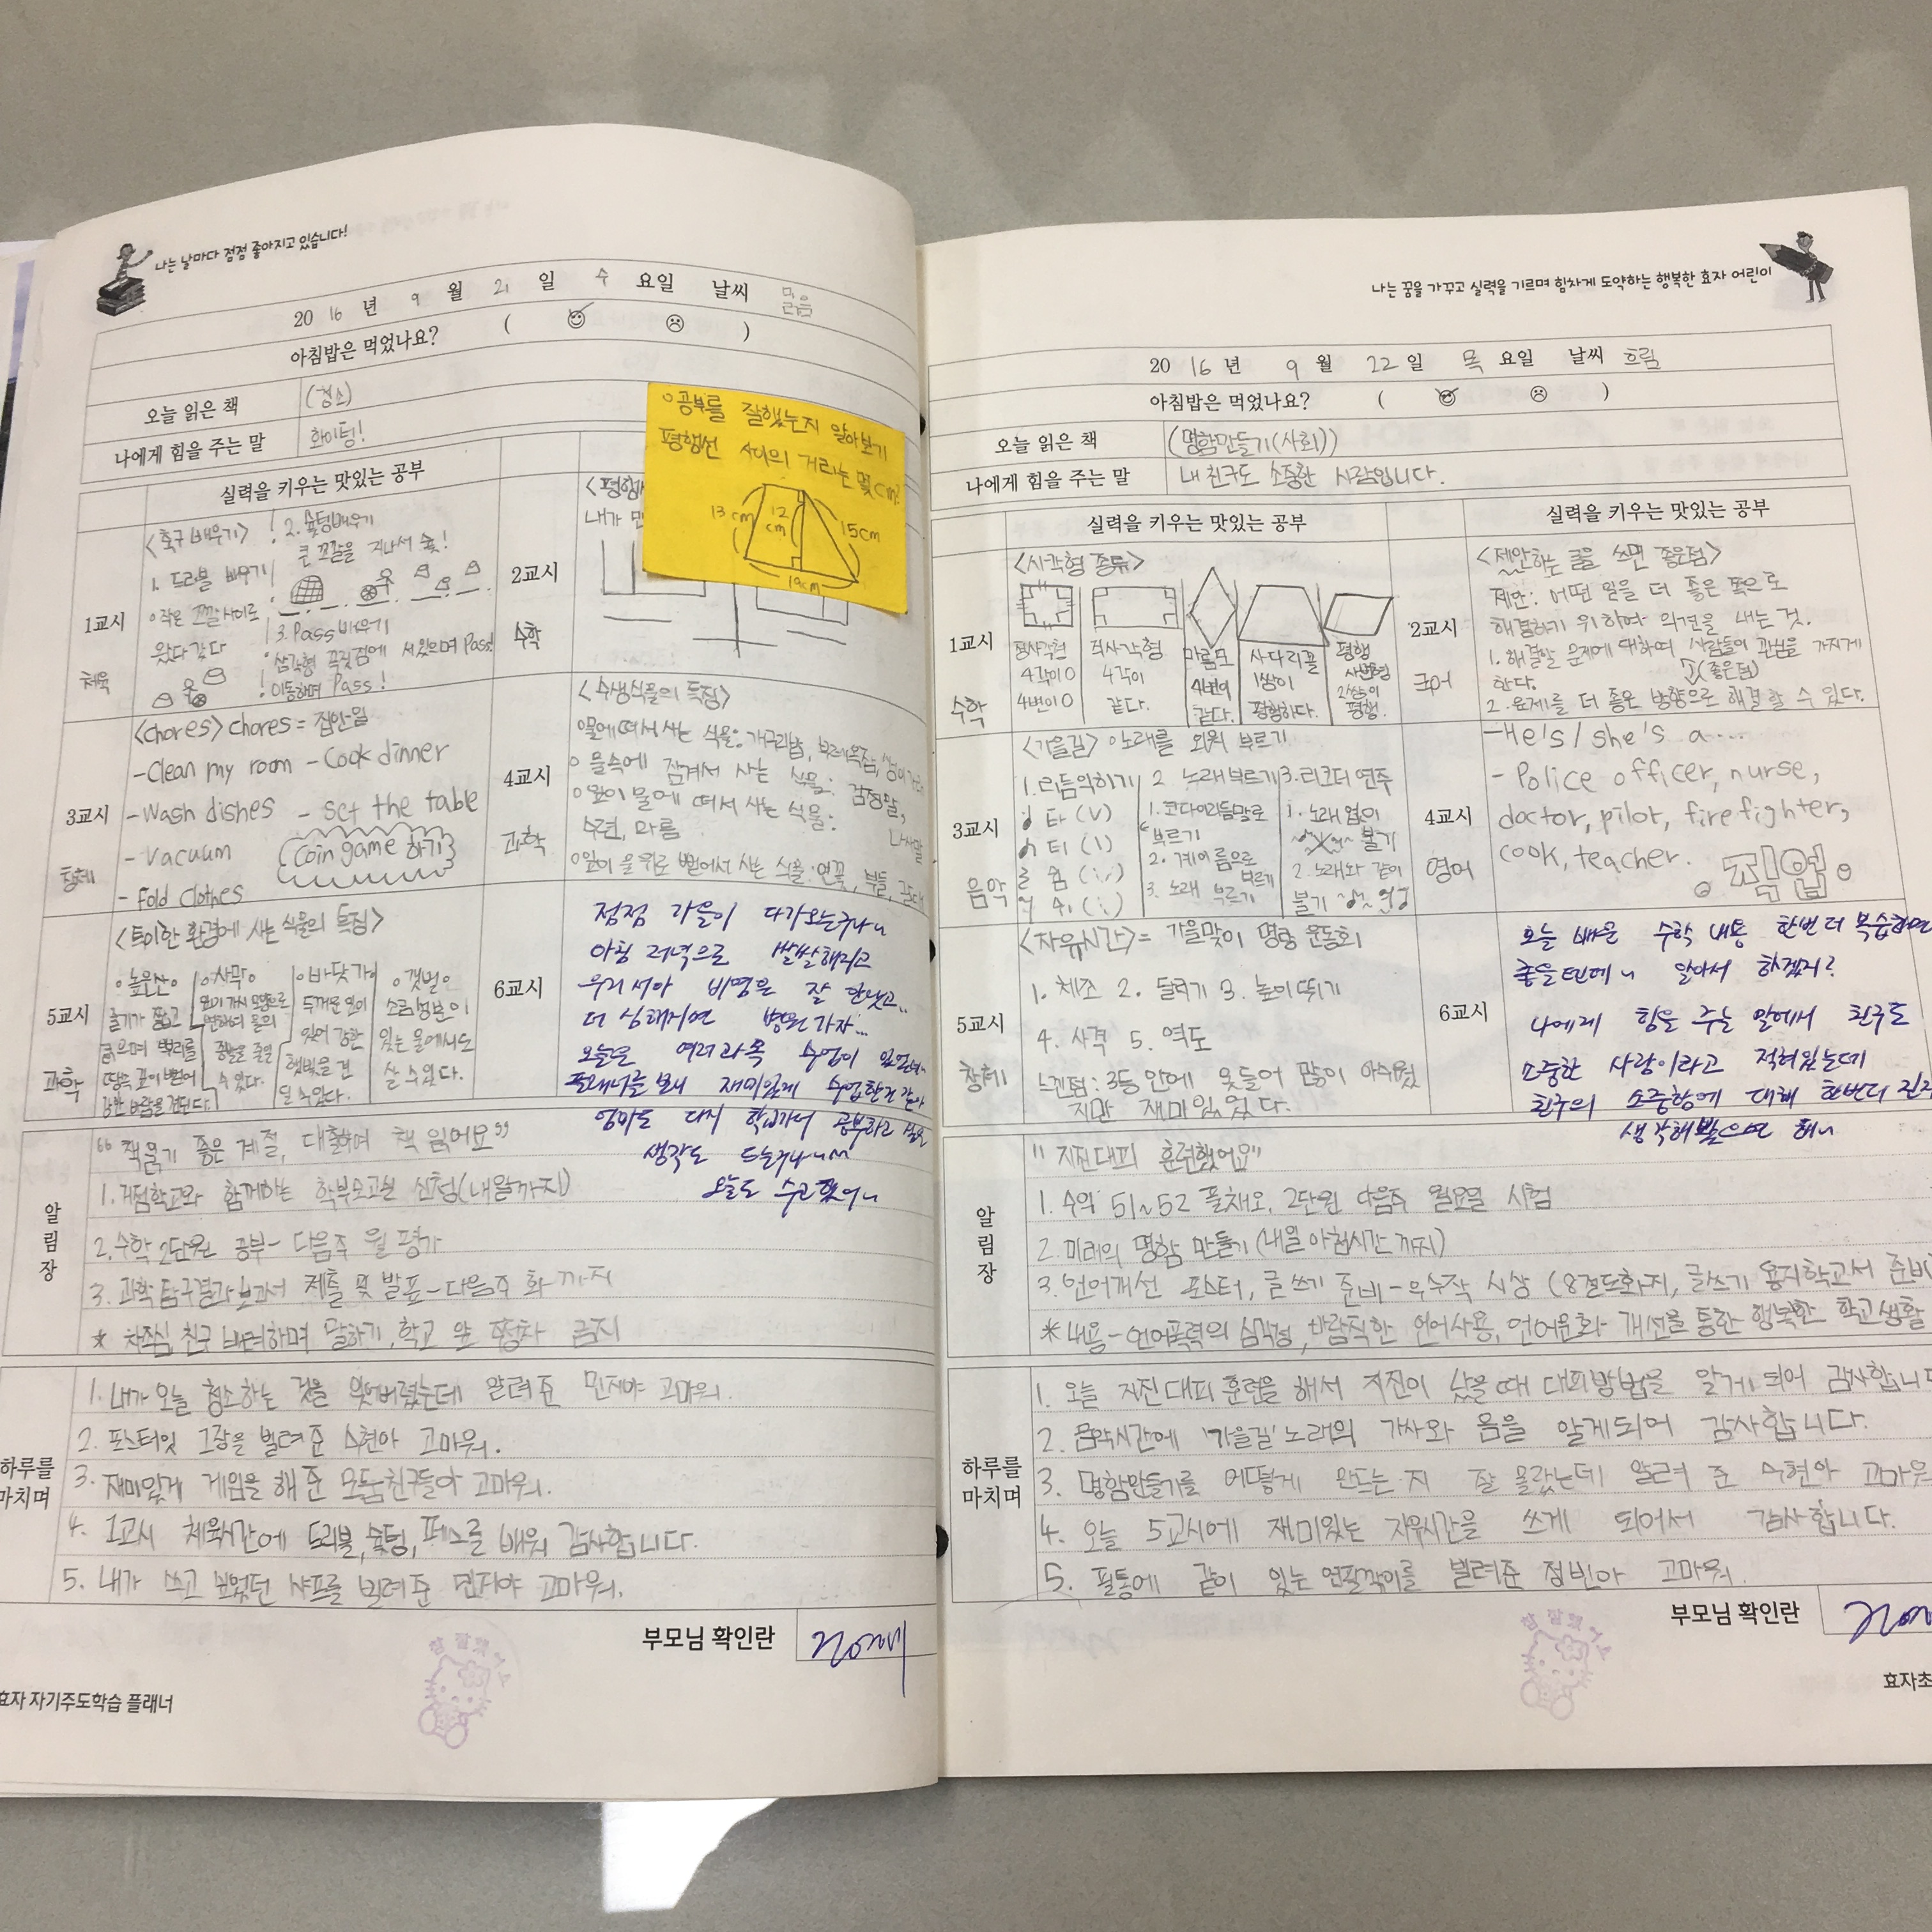 나는 날마다 점점 좋아지고 있습니다!
20 16 년 9 월 21 일 수 요일 날씨 맑음
아침밥은 먹었나요? ( )
오늘 읽은 책 (청소)
나에게 힘을 주는 말 화이팅!
실력을 키우는 맛있는 공부
1교시
체육
<축구 배우기>
1. 드리블 배우기
○작은 꼬깔 사이로
왔다 갔다
2. 슛팅배우기
큰 꼬깔을 지나서 슛!
3. Pass배우기
삼각형 꼭짓점에 서있으며 Pass!
이동하며 Pass!
2교시
수학
<평행
내가 만
○공부를 잘했는지 알아보기
평행선 사이의 거리는 몇 cm?
13 cm
12
cm
15cm
19cm
3교시
창체
<chores> chores = 집안일
-Clean my room -Cook dinner
-Wash dishes - set the table
- Vacuum Coin game 하기
- Fold clothes
4교시
과학
<수생식물의 특징>
○물에 떠서 사는 식물: 개구리밥, 부레옥잠,
○물속에 잠겨서 사는 식물: 검정말,
나사말
○잎이 물에 떠서 사는 식물:
수련, 마름
○잎이 물 위로 뻗어서 사는 식물: 연꽃, 부들, 갈대
5교시
과학
<특이한 환경에 사는 식물의 특징>
○높은산○
줄기가 짧고
굵으며 뿌리를
땅속 깊이 뻗어
강한 바람을 견딘다.
○사막○
잎이 가시 모양으로
변하여 물의
증발을 줄일
수 있다.
○바닷가○
두꺼운 잎이
있어 강한
햇빛을 견
딜 수 있다.
○갯벌○
소금성분이
있는 물에서도
살 수 있다.
6교시
점점 가을이 다가오는구나~
아침 저녁으로 쌀쌀해지고
우리 서아 비염은 잘 한냈고..
더 심해지면 병원 가자...
오늘은 여러과목 수업이 있었네~
플래너를 보니 재미있게 수업한것 같아
엄마도 다시 학교가서 공부하고 싶은
생각도 드는구나~
오늘도 수고했어~
알림장
"책 읽기 좋은 계절, 대출하여 책 읽어요"
1. 거점학교와 함께하는 학부모교실 신청(내일까지)
2. 수학 2단원 공부 - 다음주 월 평가
3. 과학 탐구결과 보고서 제출 및 발표 - 다음주 화까지
* 차조심, 친구 배려하며 말하기, 학교 앞 정차 금지
하루를 마치며
1. 내가 오늘 청소하는 것을 잊어버렸는데 알려준 민지야 고마워.
2. 포스터잇 그랑을 빌려준 수현아 고마워.
3. 재미있게 게임을 해 준 모둠친구들아 고마워.
4. 1교시 체육시간에 드리블, 슛팅, 페스를 배워 감사합니다.
5. 내가 쓰고 싶었던 샤프를 빌려준 민지야 고마워.
부모님 확인란
참 잘했어요
효자 자기주도학습 플래너
나는 꿈을 가꾸고 실력을 기르며 힘차게 도약하는 행복한 효자 어린이
20 16 년 9 월 22 일 목 요일 날씨 흐림
아침밥은 먹었나요? ( )
오늘 읽은 책 (명함만들기(사회))
나에게 힘을 주는 말 내 친구도 소중한 사람입니다.
실력을 키우는 맛있는 공부
실력을 키우는 맛있는 공부
1교시
수학
<사각형 종류>
정사각형
4각이 ○
4변이 ○
직사각형
4각이
같다.
마름모
4변이
같다.
사다리꼴
1쌍이
평행하다.
평행
사변형
2쌍이
평행.
2교시
국어
<제안하는 글을 쓰면 좋은점>
제안: 어떤 일을 더 좋은 쪽으로
해결하기 위하여 의견을 내는 것.
1. 해결할 문제에 대하여 사람들이 관심을 가지게
한다. (좋은점)
2. 문제를 더 좋은 방향으로 해결할 수 있다.
3교시
음악
<가을길> ○노래를 외워 부르기
1. 리듬익히기
타 (V)
티 (I)
2. 노래부르기
1. 코다이리듬말로
부르기
2. 계이름으로
부르기
3. 노래 부르기
3. 리코더 연주
1. 노래 없이
불기
2. 노래와 같이
불기
4교시
영어
-He's / she's a...
- Police officer, nurse,
doctor, pilot, fire fighter,
cook, teacher. 직업
5교시
창체
<자유시간> = 가을맞이 명랑 운동회
1. 체조 2. 달리기 3. 높이뛰기
4. 사격 5. 역도
느낀점: 3등 안에 못들어 많이 아쉬웠
지만 재미있었다.
6교시
오늘 배운 수학 내용 한번 더 복습하면
좋을텐데~ 알아서 하겠지?
나에게 힘을 주는 말에서 친구도
소중한 사람이라고 적혀있는데
친구의 소중함에 대해 한번더 진지
생각해봤으면 해~
알림장
"지진대피 훈련했어요"
1. 수익 51~52 풀채오, 2단원 다음주 월요일 시험
2. 미래의 명함 만들기 (내일 아침시간 까지)
3. 언어개선 포스터, 글쓰기 준비 - 우수작 시상 (8절도화지, 글쓰기 용지학교서 준비
* 내용 - 언어폭력의 심각성, 바람직한 언어사용, 언어문화 개선을 통한 행복한 학교생활
하루를 마치며
1. 오늘 지진 대피 훈련을 해서 지진이 났을 때 대피방법을 알게 되어 감사합니다
2. 음악시간에 '가을길' 노래의 가사와 음을 알게되어 감사합니다.
3. 명함만들기를 어떻게 만드는 지 잘 몰랐는데 알려 준 수현아 고마워
4. 오늘 5교시에 재미있는 자유시간을 쓰게 되어서 감사합니다.
5. 필통에 같이 있는 연필깎이를 빌려준 정빈아 고마워.
부모님 확인란
참 잘했어요
효자초